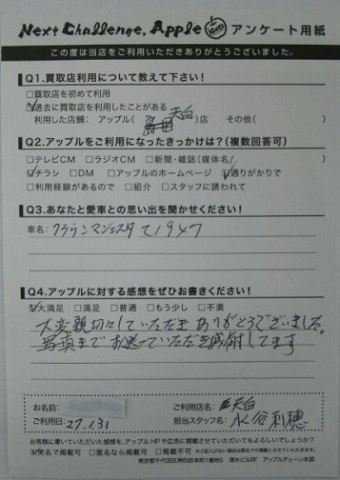 Next Challenge, Apple アンケート用紙
この度は当店をご利用いただきありがとうございました。
Q1.買取店利用について教えて下さい!
□買取店を初めて利用
☑過去に買取店を利用したことがある
利用した店舗: アップル( 天白 )店 その他( )
Q2.アップルをご利用になったきっかけは?(複数回答可)
□テレビCM □ラジオCM □新聞・雑誌(媒体名/ )
☑チラシ □DM □アップルのホームページ ☑通りがかりで
□利用経験があるので □紹介 □スタッフに誘われて
Q3.あなたと愛車との思い出を聞かせください!
車名: クラウンマジェスタ
Q4.アップルに対する感想をぜひお書きください!
☑大満足 □満足 □普通 □もう少し □不満
大変親切にしていただき ありがとうございました。
駅まで お送っていただき感謝してます
お名前:
ご利用店名: 天白
ご利用日: 27.1.31
担当スタッフ名: 水谷利穂
お客様に書いていただいた感想を、アップルHPや広告に掲載させていただいてもよろしいでしょうか?
☑実名で掲載可 □匿名なら掲載可 □掲載不可
東京都千代田区神田錦町 アップルチェーン本部